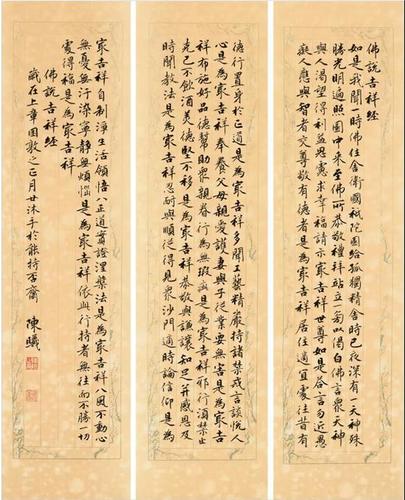 佛說吉祥經
如是我聞一時佛住舍衛國祇陀園給孤獨精舍時已夜深有一天神殊
勝光明遍照園中來至佛所恭敬禮拜站立一旁以偈白佛言眾天神
與人渴望得利益思慮求幸福請示最吉祥世尊如是答言勿近愚
癡人應與智者交尊敬有德者是為最吉祥居住適宜處往昔有
德行置身於正道是為最吉祥多聞工藝精嚴持諸禁戒言談悅人
心是為最吉祥奉養父母親愛護妻與子從業要無害是為最吉
祥布施好品德幫助眾親眷行為無瑕是為最吉祥邪行須禁止
克己不飲酒美德堅不移是為最吉祥恭敬與謙讓知足並感恩及
時聞教法是為最吉祥忍耐與順從得見眾沙門適時論信仰是為
最吉祥自制淨生活領悟八正道實證涅槃法是為最吉祥八風不動心
無憂無污染寧靜無煩惱是為最吉祥依此行持者無往而不勝一切
處得福是為最吉祥
佛說吉祥經
歲在上章困敦之正月廿沐手於能持
齋
陳曦